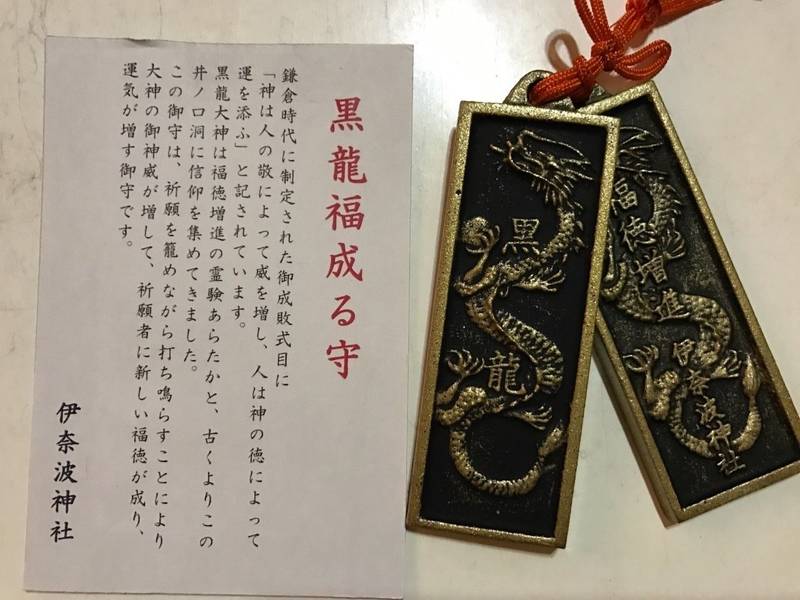 黒龍福成る守
鎌倉時代に制定された御成敗式目に
「神は人の敬によって威を増し、人は神の徳によって
運を添ふ」と記されています。
黒龍大神は福徳増進の霊験あらたかと、古くよりこの
井ノ口洞に信仰を集めてきました。
この御守は、祈願を籠めながら打ち鳴らすことにより
大神の御神威が増して、祈願者に新しい福徳が成り、
運気が増す御守です。
伊奈波神社
黒龍
福徳増進
伊奈波神社